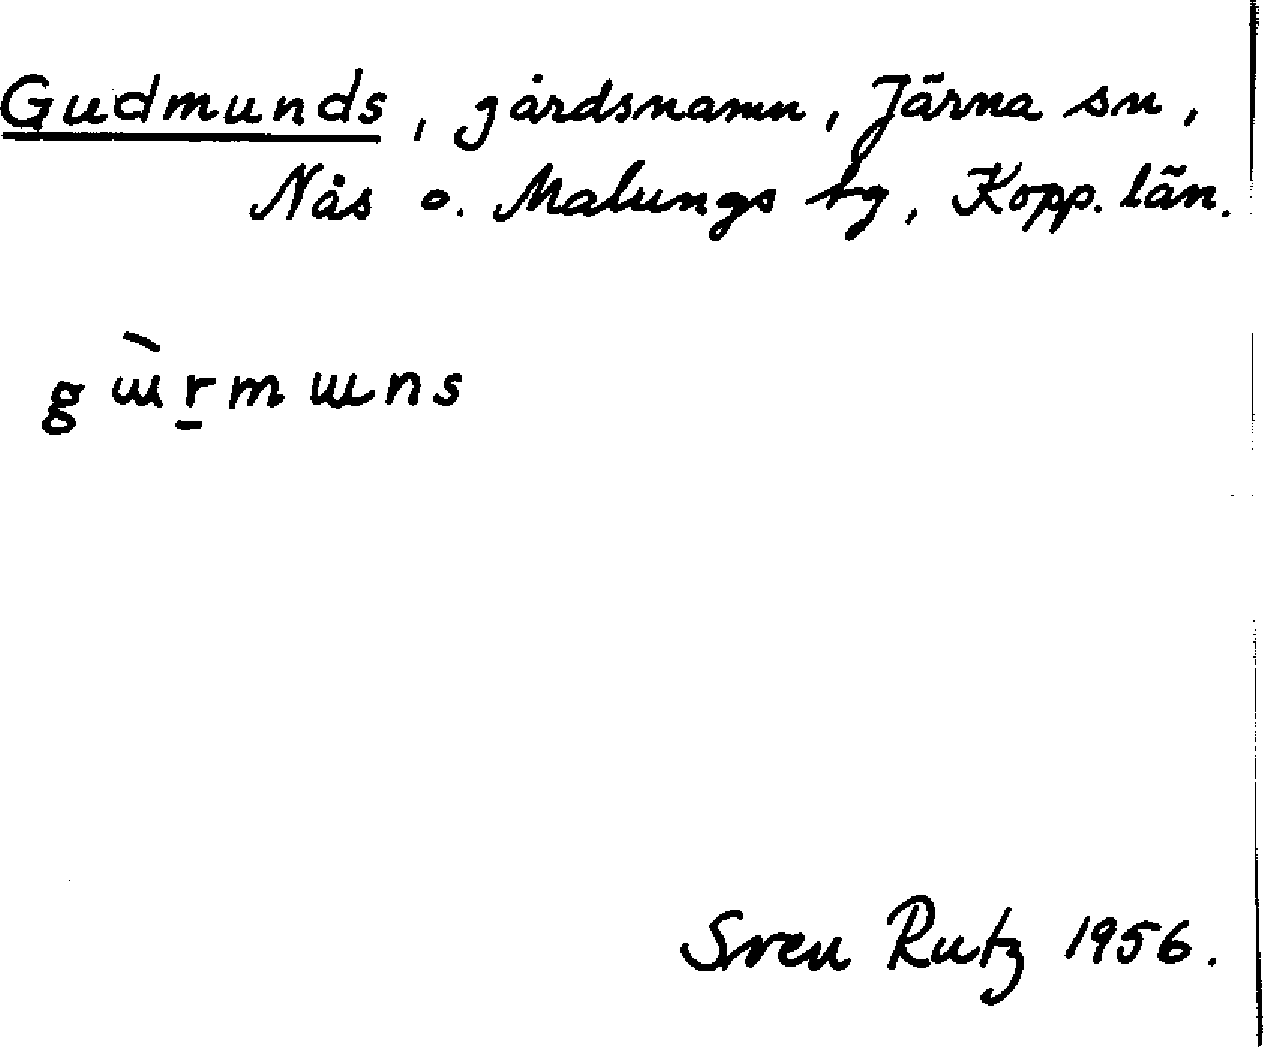 Gudmunds, gårdsnamn, Järna sn,
Nås o. Malungs tg, Kopp. län.
gɯ̀r̠mɯns
Sven Rutz 1956.